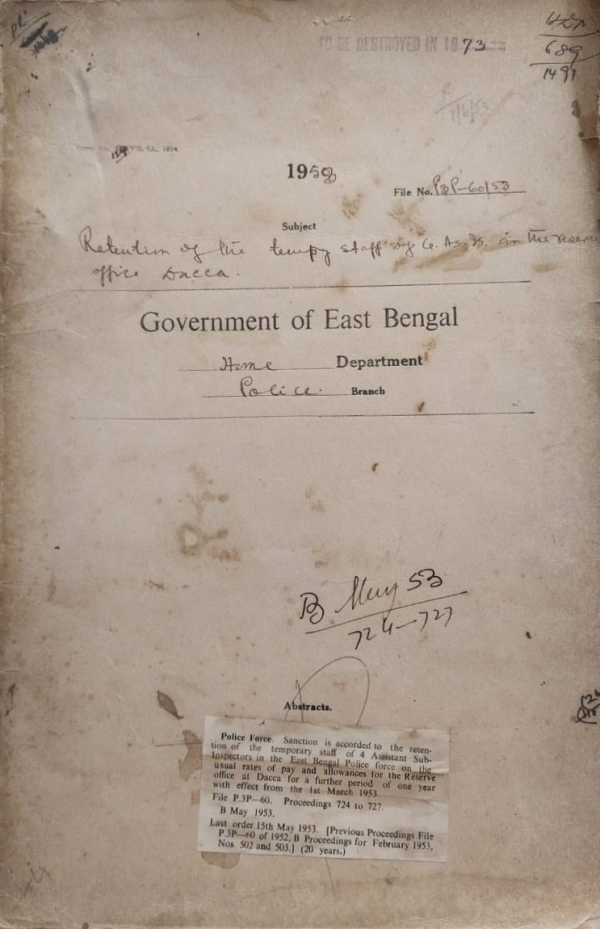 TO BE DESTROYED IN 1973
689
1491
1953
File No. P3P-60/53
Subject
Retention of the tempy staff of 4 A.S.Is. in the reserve
office Dacca.
Government of East Bengal
Home Department
Police Branch
B May 53
724-727
Abstracts.
Police Force. Sanction is accorded to the reten-
tion of the temporary staff of 4 Assistant Sub-
Inspectors in the East Bengal Police force on the
usual rates of pay and allowances for the Reserve
office at Dacca for a further period of one year
with effect from the 1st March 1953.
File P.3P—60. Proceedings 724 to 727.
B May 1953.
Last order 15th May 1953. [Previous Proceedings File
P.3P—60 of 1952, B Proceedings for February 1953,
Nos. 502 and 503.] (20 years.)